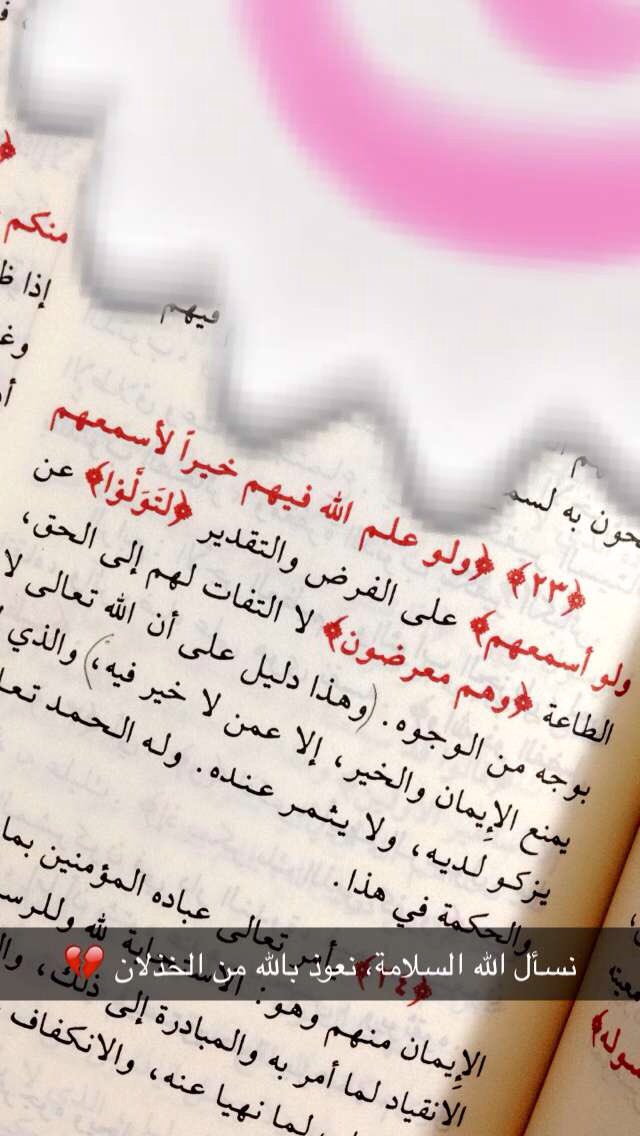 منكم
إذا
فيهم
لسم
﴿٢٣﴾ ﴿ولو علم الله فيهم خيراً لأسمعهم
ولو أسمعهم﴾ على الفرض والتقدير ﴿لتَوَلَّوْا﴾ عن
الطاعة ﴿وهم معرضون﴾ لا التفات لهم إلى الحق،
بوجه من الوجوه. (وهذا دليل على أن الله تعالى لا
يمنع الإيمان والخير، إلا عمن لا خير فيه،) والذي
يزكو لديه، ولا يثمر عنده. وله الحمد
والحكمة في هذا.
﴿٢٤﴾ يأمر تعالى عباده المؤمنين بما
الإيمان منهم وهو: الاستجابة لله
الانقياد لما أمر به والمبادرة إلى ذلك،
لما نهيا عنه، والانكفاف
نسأل الله السلامة، نعوذ بالله من الخذلان 💔